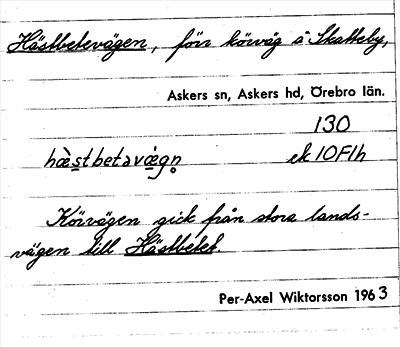 Hästbetevägen, förr körväg å Skatteby,
Askers sn, Askers hd, Örebro län.
130
hæ̀stbetavæ̀gn̥ ek 10F1h
Körvägen gick från stora lands-
vägen till Hästbetet.
Per-Axel Wiktorsson 1963